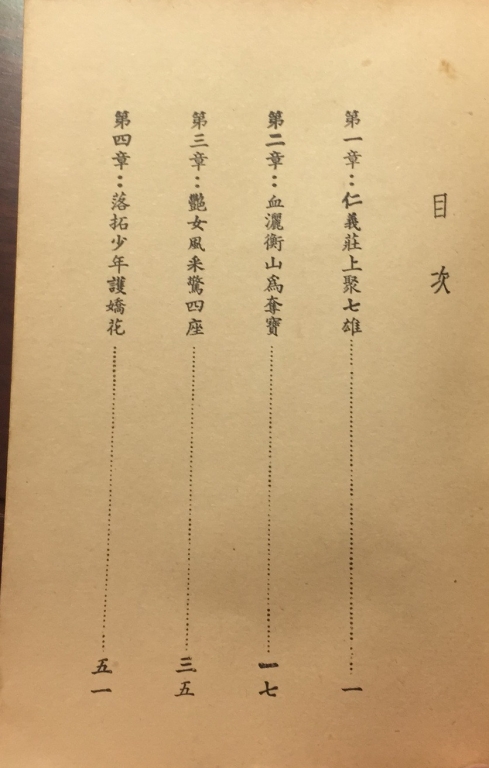 目次
第一章：仁義莊上聚七雄…………一
第二章：血灑衡山爲奪寶…………一七
第三章：艷女風采驚四座…………三五
第四章：落拓少年護嬌花…………五一